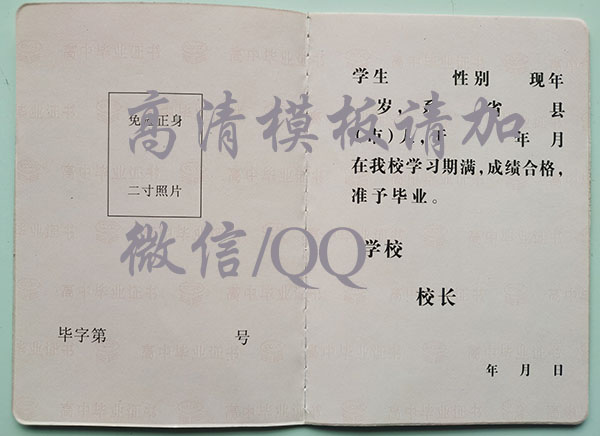 免冠正身
二寸照片
毕字第 号
学生 性别 现年
岁，系 省 县
(市)人，于 年 月
在我校学习期满，成绩合格，
准予毕业。
学校
校长
年 月 日
高清模板请加
微信/QQ